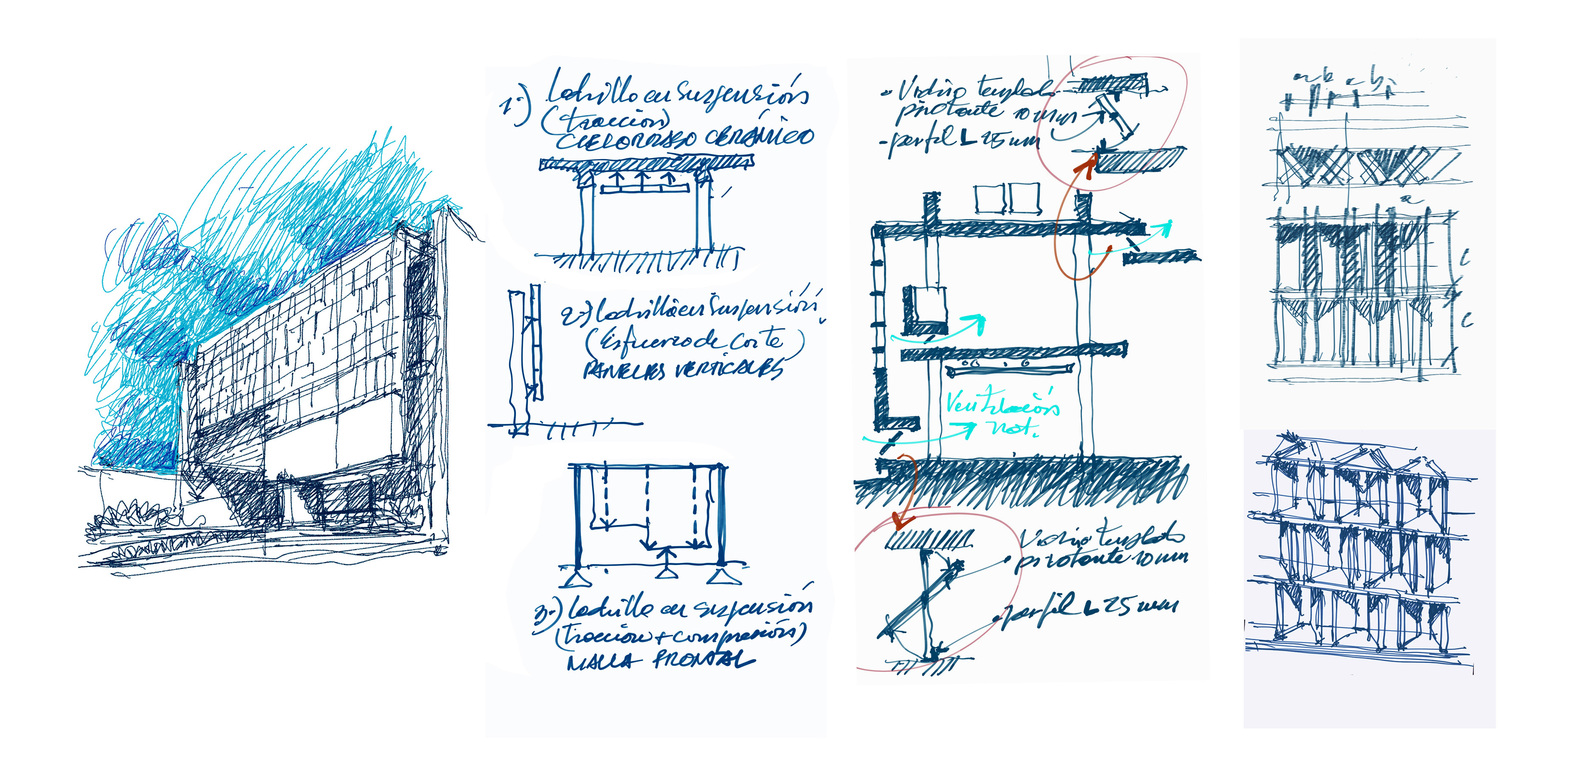 1-) Ladrillo en suspensión
(tracción)
CIELORRASO CERÁMICO
2-) Ladrillo en suspensión
(Esfuerzo de corte)
PANELES VERTICALES
3-) Ladrillo en suspensión
(Tracción + compresión)
MALLA FRONTAL
- Vidrio templado
pivotante 10 mm
- perfil L 25 mm
Ventilación
nat.
Vidrio templado
pivotante 10 mm
perfil L 25 mm
a b a b
a
c
c